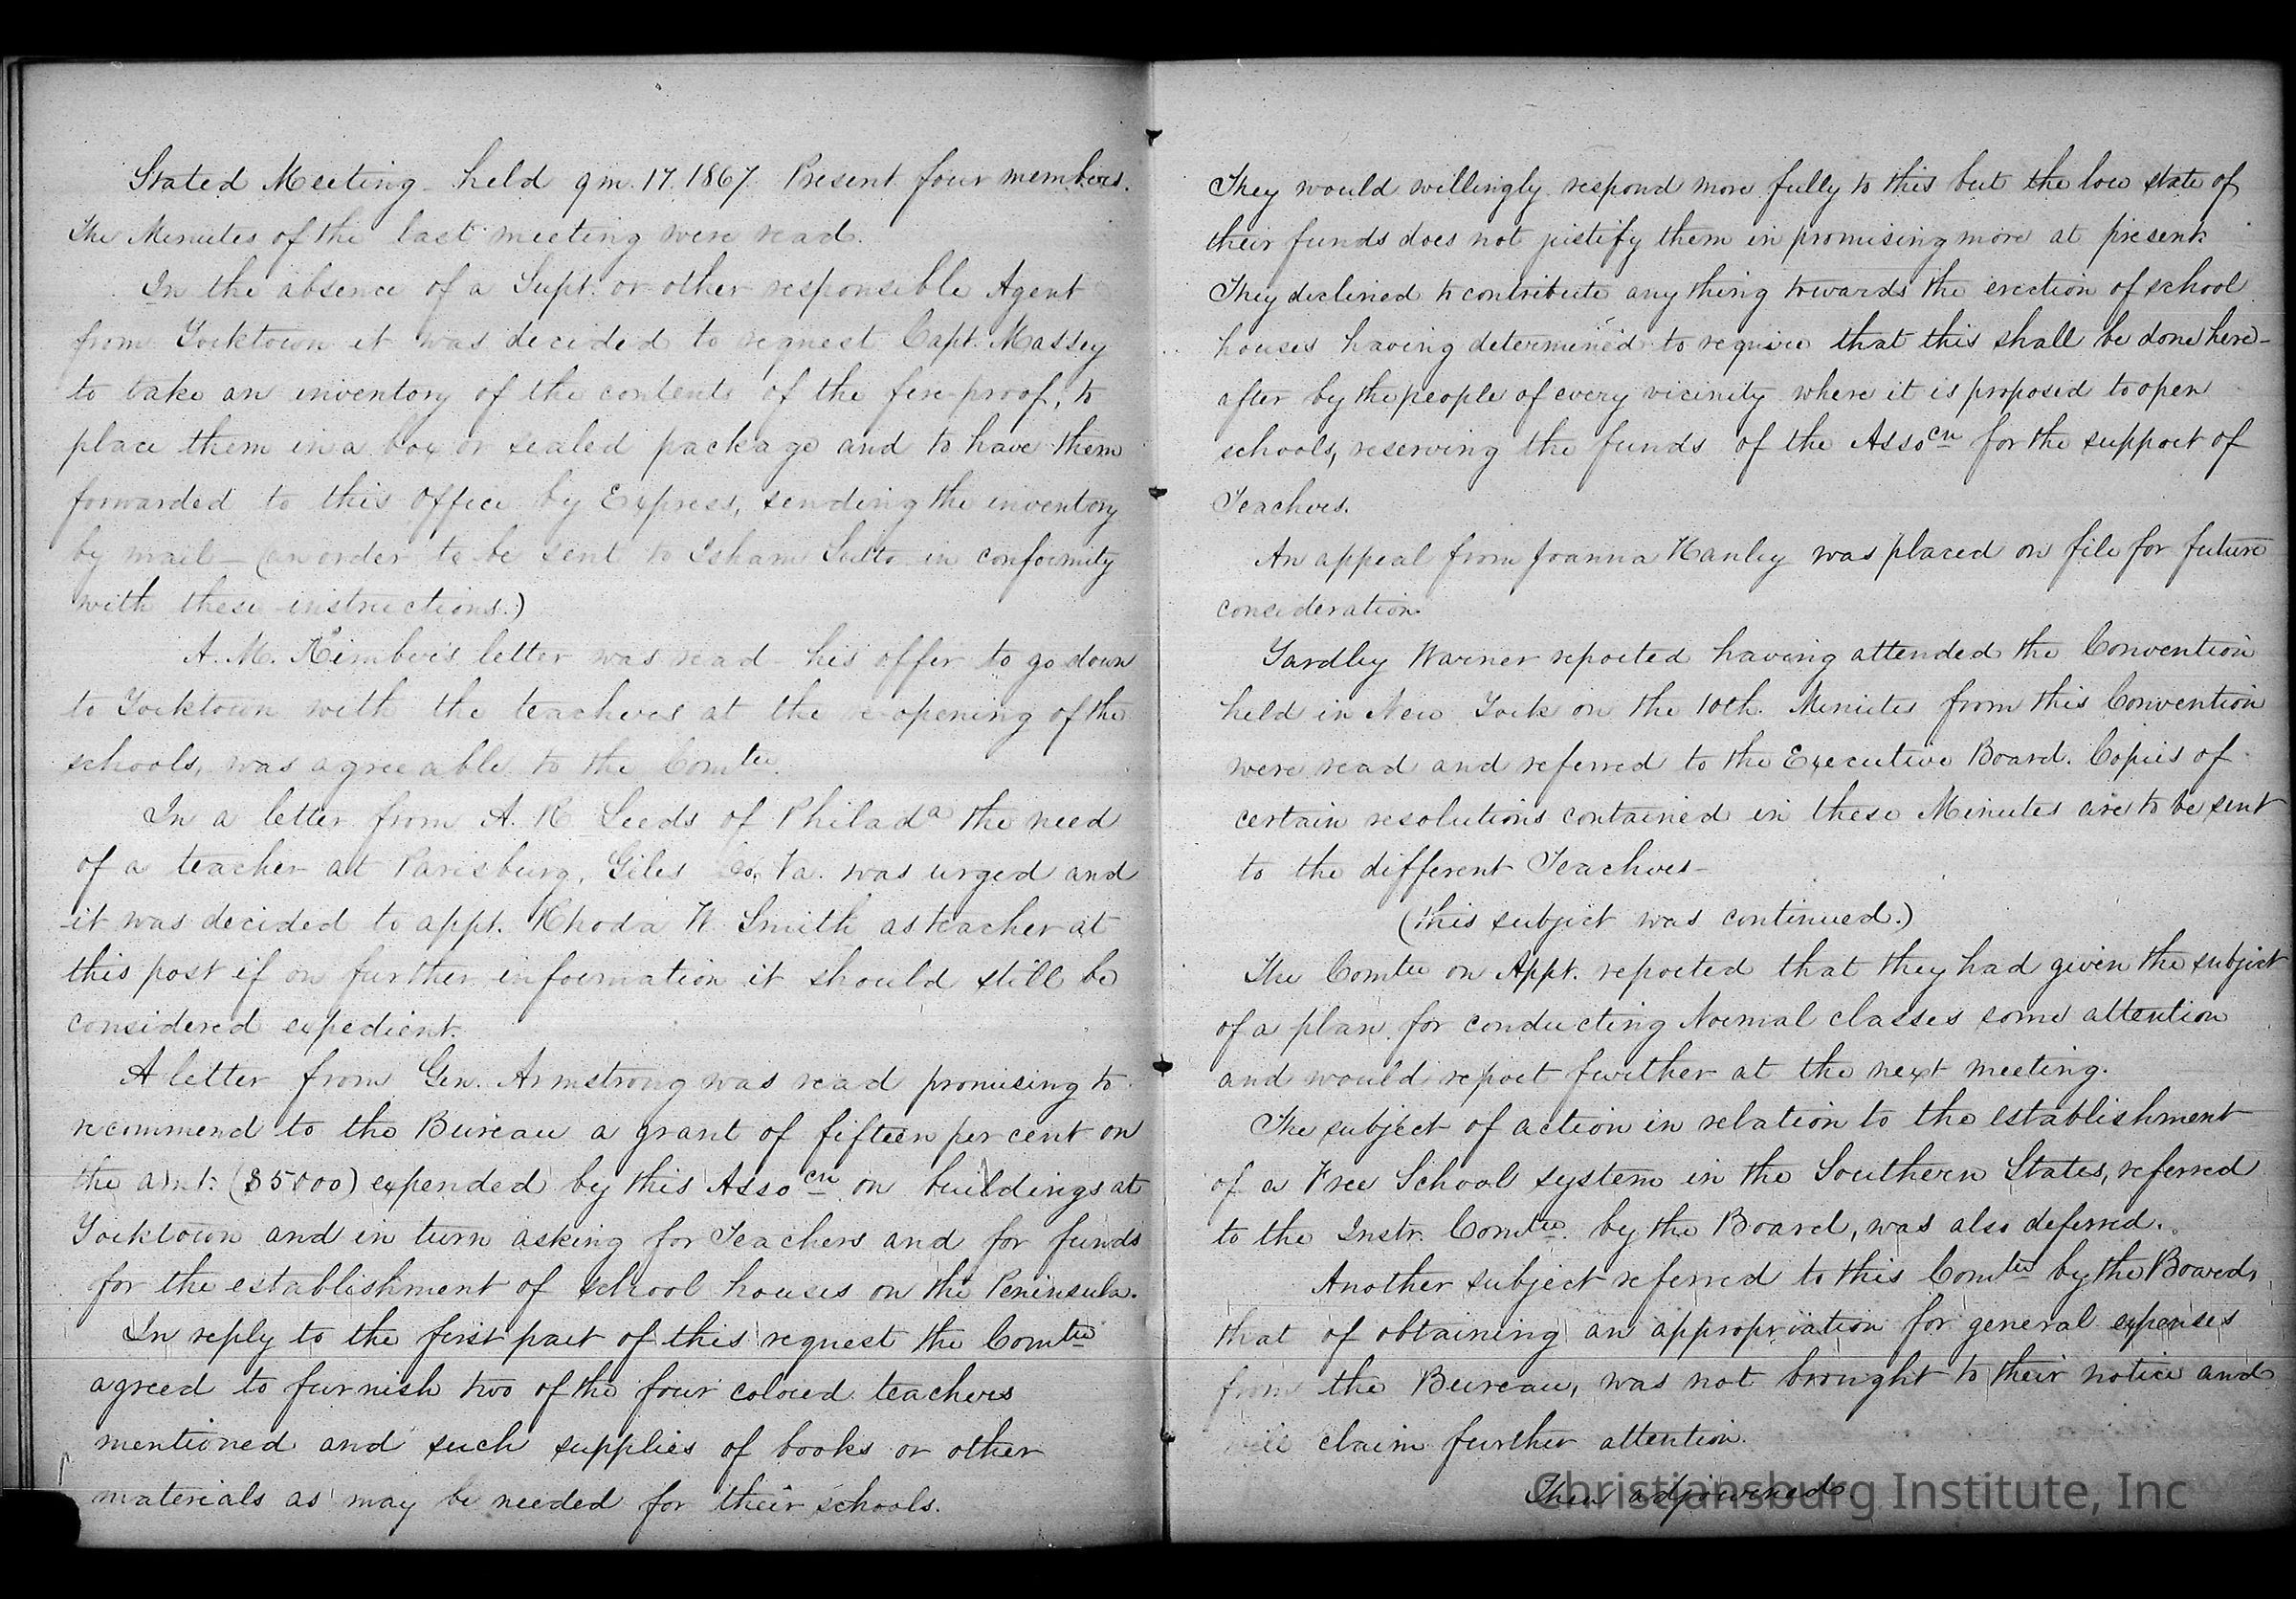 Stated Meeting held 9 m. 17. 1867. Present four members.
The Minutes of the last meeting were read.
In the absence of a Supt. or other responsible Agent
from Yorktown it was decided to request Capt. Massey
to take an inventory of the contents of the fire-proof, to
place them in a box or sealed package and to have them
forwarded to this Office by Express, sending the inventory
by mail — (an order to be sent to Isham in conformity
with these instructions.)
A. M. Kimber's letter was read - his offer to go down
to Yorktown with the teachers at the re-opening of the
schools, was agreeable to the Comtee.
In a letter from A. R. Leeds of Philada the need
of a teacher at Parisburg, Giles Co. Va. was urged and
it was decided to appt. Rhoda W. Smith as teacher at
this post if on further information it should still be
considered expedient.
A letter from Gen. Armstrong was read promising to
recommend to the Bureau a grant of fifteen per cent on
the amt. ($5000) expended by this Assocn on buildings at
Yorktown and in turn asking for Teachers and for funds
for the establishment of school houses on the Peninsula.
In reply to the first part of this request the Comtee
agreed to furnish two of the four colored teachers
mentioned and such supplies of books or other
materials as may be needed for their schools.
They would willingly respond more fully to this but the low state of
their funds does not justify them in promising more at present.
They declined to contribute any thing towards the erection of school
houses having determined to require that this shall be done here-
after by the people of every vicinity where it is proposed to open
schools, reserving the funds of the Assocn for the support of
Teachers.
An appeal from Joanna Hanley was placed on file for future
consideration.
Yardley Warner reported having attended the Convention
held in New York on the 10th. Minutes from this Convention
were read and referred to the Executive Board. Copies of
certain resolutions contained in these Minutes are to be sent
to the different Teachers —
(this subject was continued.)
The Comtee on Appt. reported that they had given the subject
of a plan for conducting Normal classes some attention
and would report further at the next meeting.
The subject of action in relation to the establishment
of a Free School system in the Southern States, referred
to the Instr. Comtee. by the Board, was also deferred.
Another subject referred to this Comtee by the Board,
that of obtaining an appropriation for general expenses
from the Bureau, was not brought to their notice and
will claim further attention.
Then adjourned.
Christiansburg Institute, Inc